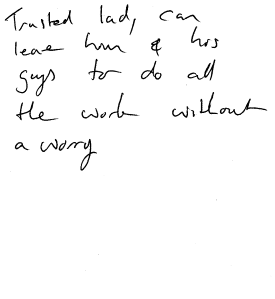 Trusted lad, can
leave him & his
guys to do all
the work without
a worry